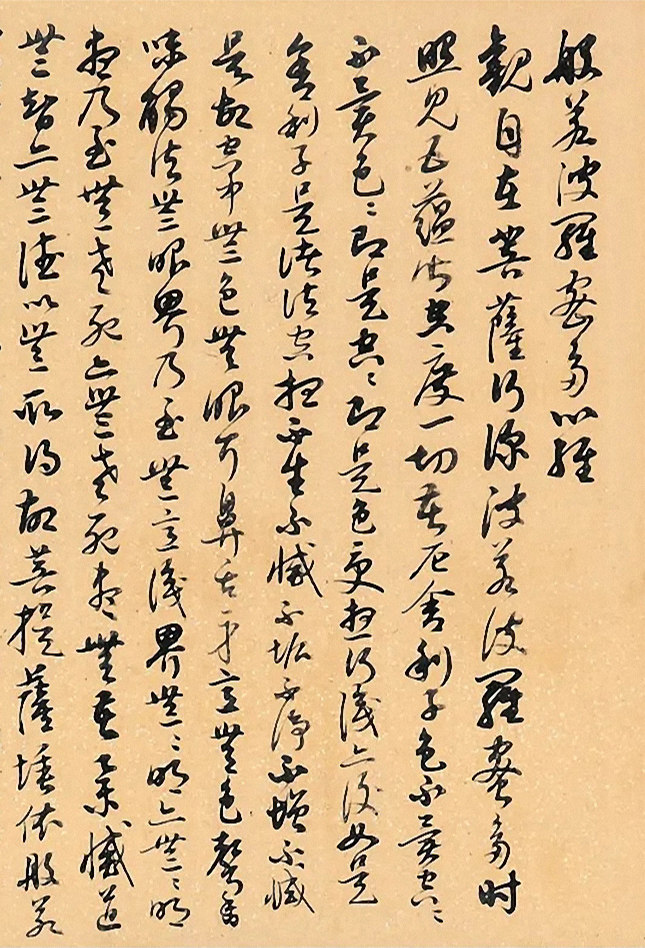 般若波羅蜜多心經
觀自在菩薩行深波若波羅蜜多時
照見五蘊皆空度一切苦厄舍利子色不異空〻
不異色〻即是空〻即是色受想行識亦復如是
舍利子是諸法空相不生不滅不垢不淨不增不滅
是故空中無色無眼耳鼻舌身意無色聲香
味觸法無眼界乃至無意識界無〻明亦無〻明
盡乃至無老死亦無老死盡無苦集滅道
無智亦無德以無所得故菩提薩埵依般若